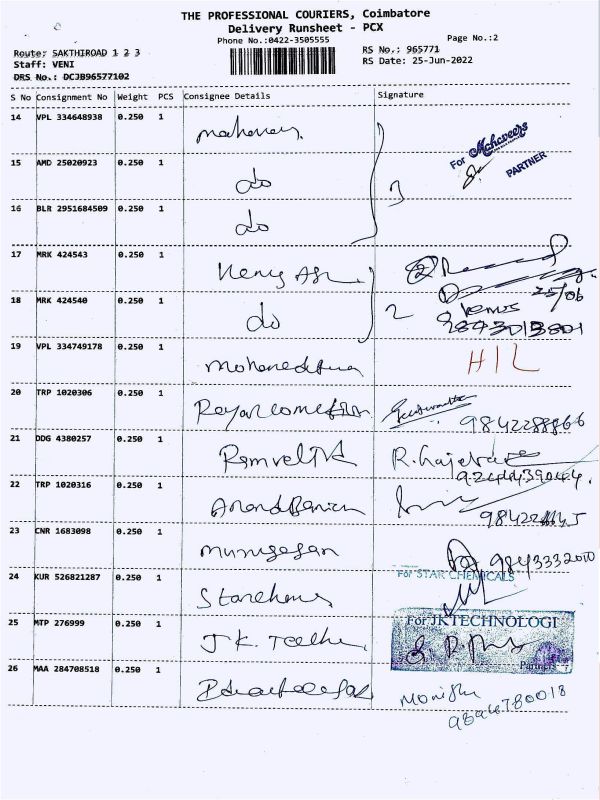 THE PROFESSIONAL COURIERS, Coimbatore
Delivery Runsheet - PCX
Phone No.:0422-3505555
Page No.:2
Route: SAKTHIROAD 1 2 3
RS No.: 965771
Staff: VENI
RS Date: 25-Jun-2022
DRS No.: DCJB96577102
S No Consignment No Weight PCS Consignee Details Signature
14 VPL 334648938 0.250 1
For Mahaveers
PARTNER
15 AMD 25020923 0.250 1 do
3
16 BLR 2951684509 0.250 1 do
17 MRK 424543 0.250 1
25/06
18 MRK 424540 0.250 1 do 2 Venus
9843013801
19 VPL 334749178 0.250 1 HIL
20 TRP 1020306 0.250 1
9842288866
21 DDG 4380257 0.250 1
9244439044
22 TRP 1020316 0.250 1
23 CNR 1683098 0.250 1 murugesan 9843332010
24 KUR 526821287 0.250 1
For STAR CHEMICALS
25 MTP 276999 0.250 1 J.K. For JKTECHNOLOGI
Partner
26 MAA 284708518 0.250 1
9894780018